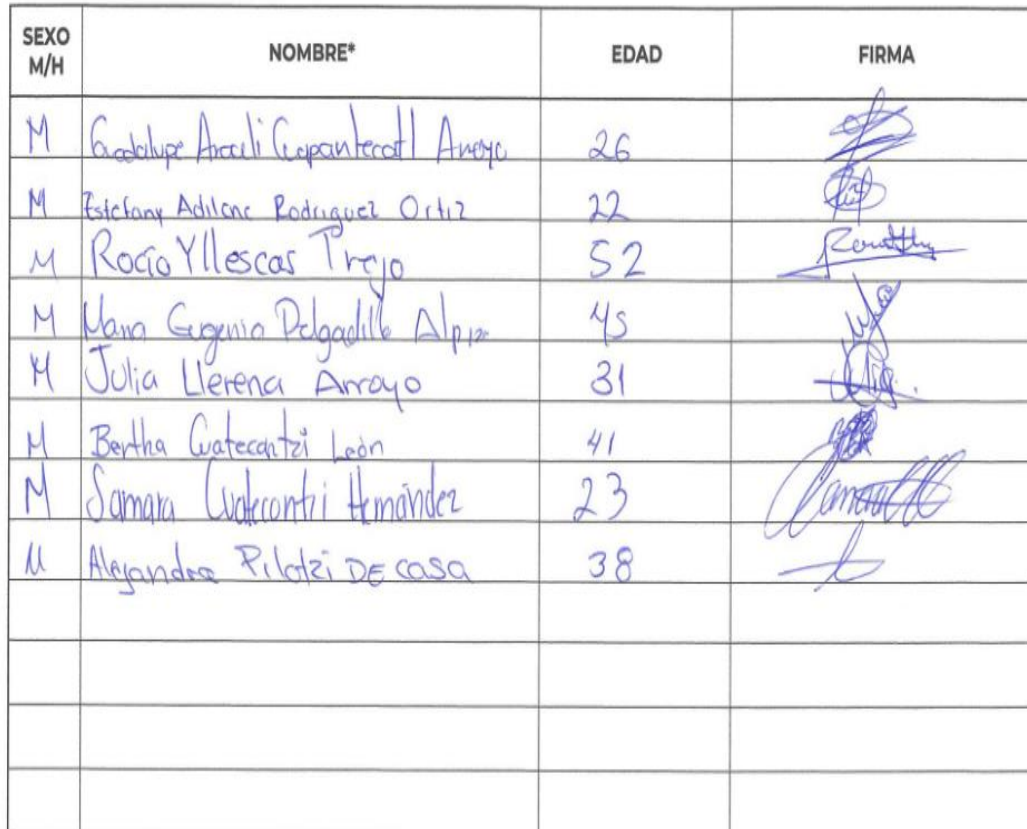 SEXO M/H NOMBRE* EDAD FIRMA
M Guadalupe Araceli Cuapantecatl Arroyo 26
M Estefany Adilene Rodriguez Ortiz 22
M Rocío Yllescas Trejo 52
M Maria Eugenia Delgadillo 45
M Julia Llerena Arroyo 31
M Bertha Cuatecontzi León 41
M Samara Cuatecontzi Hernández 23
M Alejandra Pilotzi DE casa 38